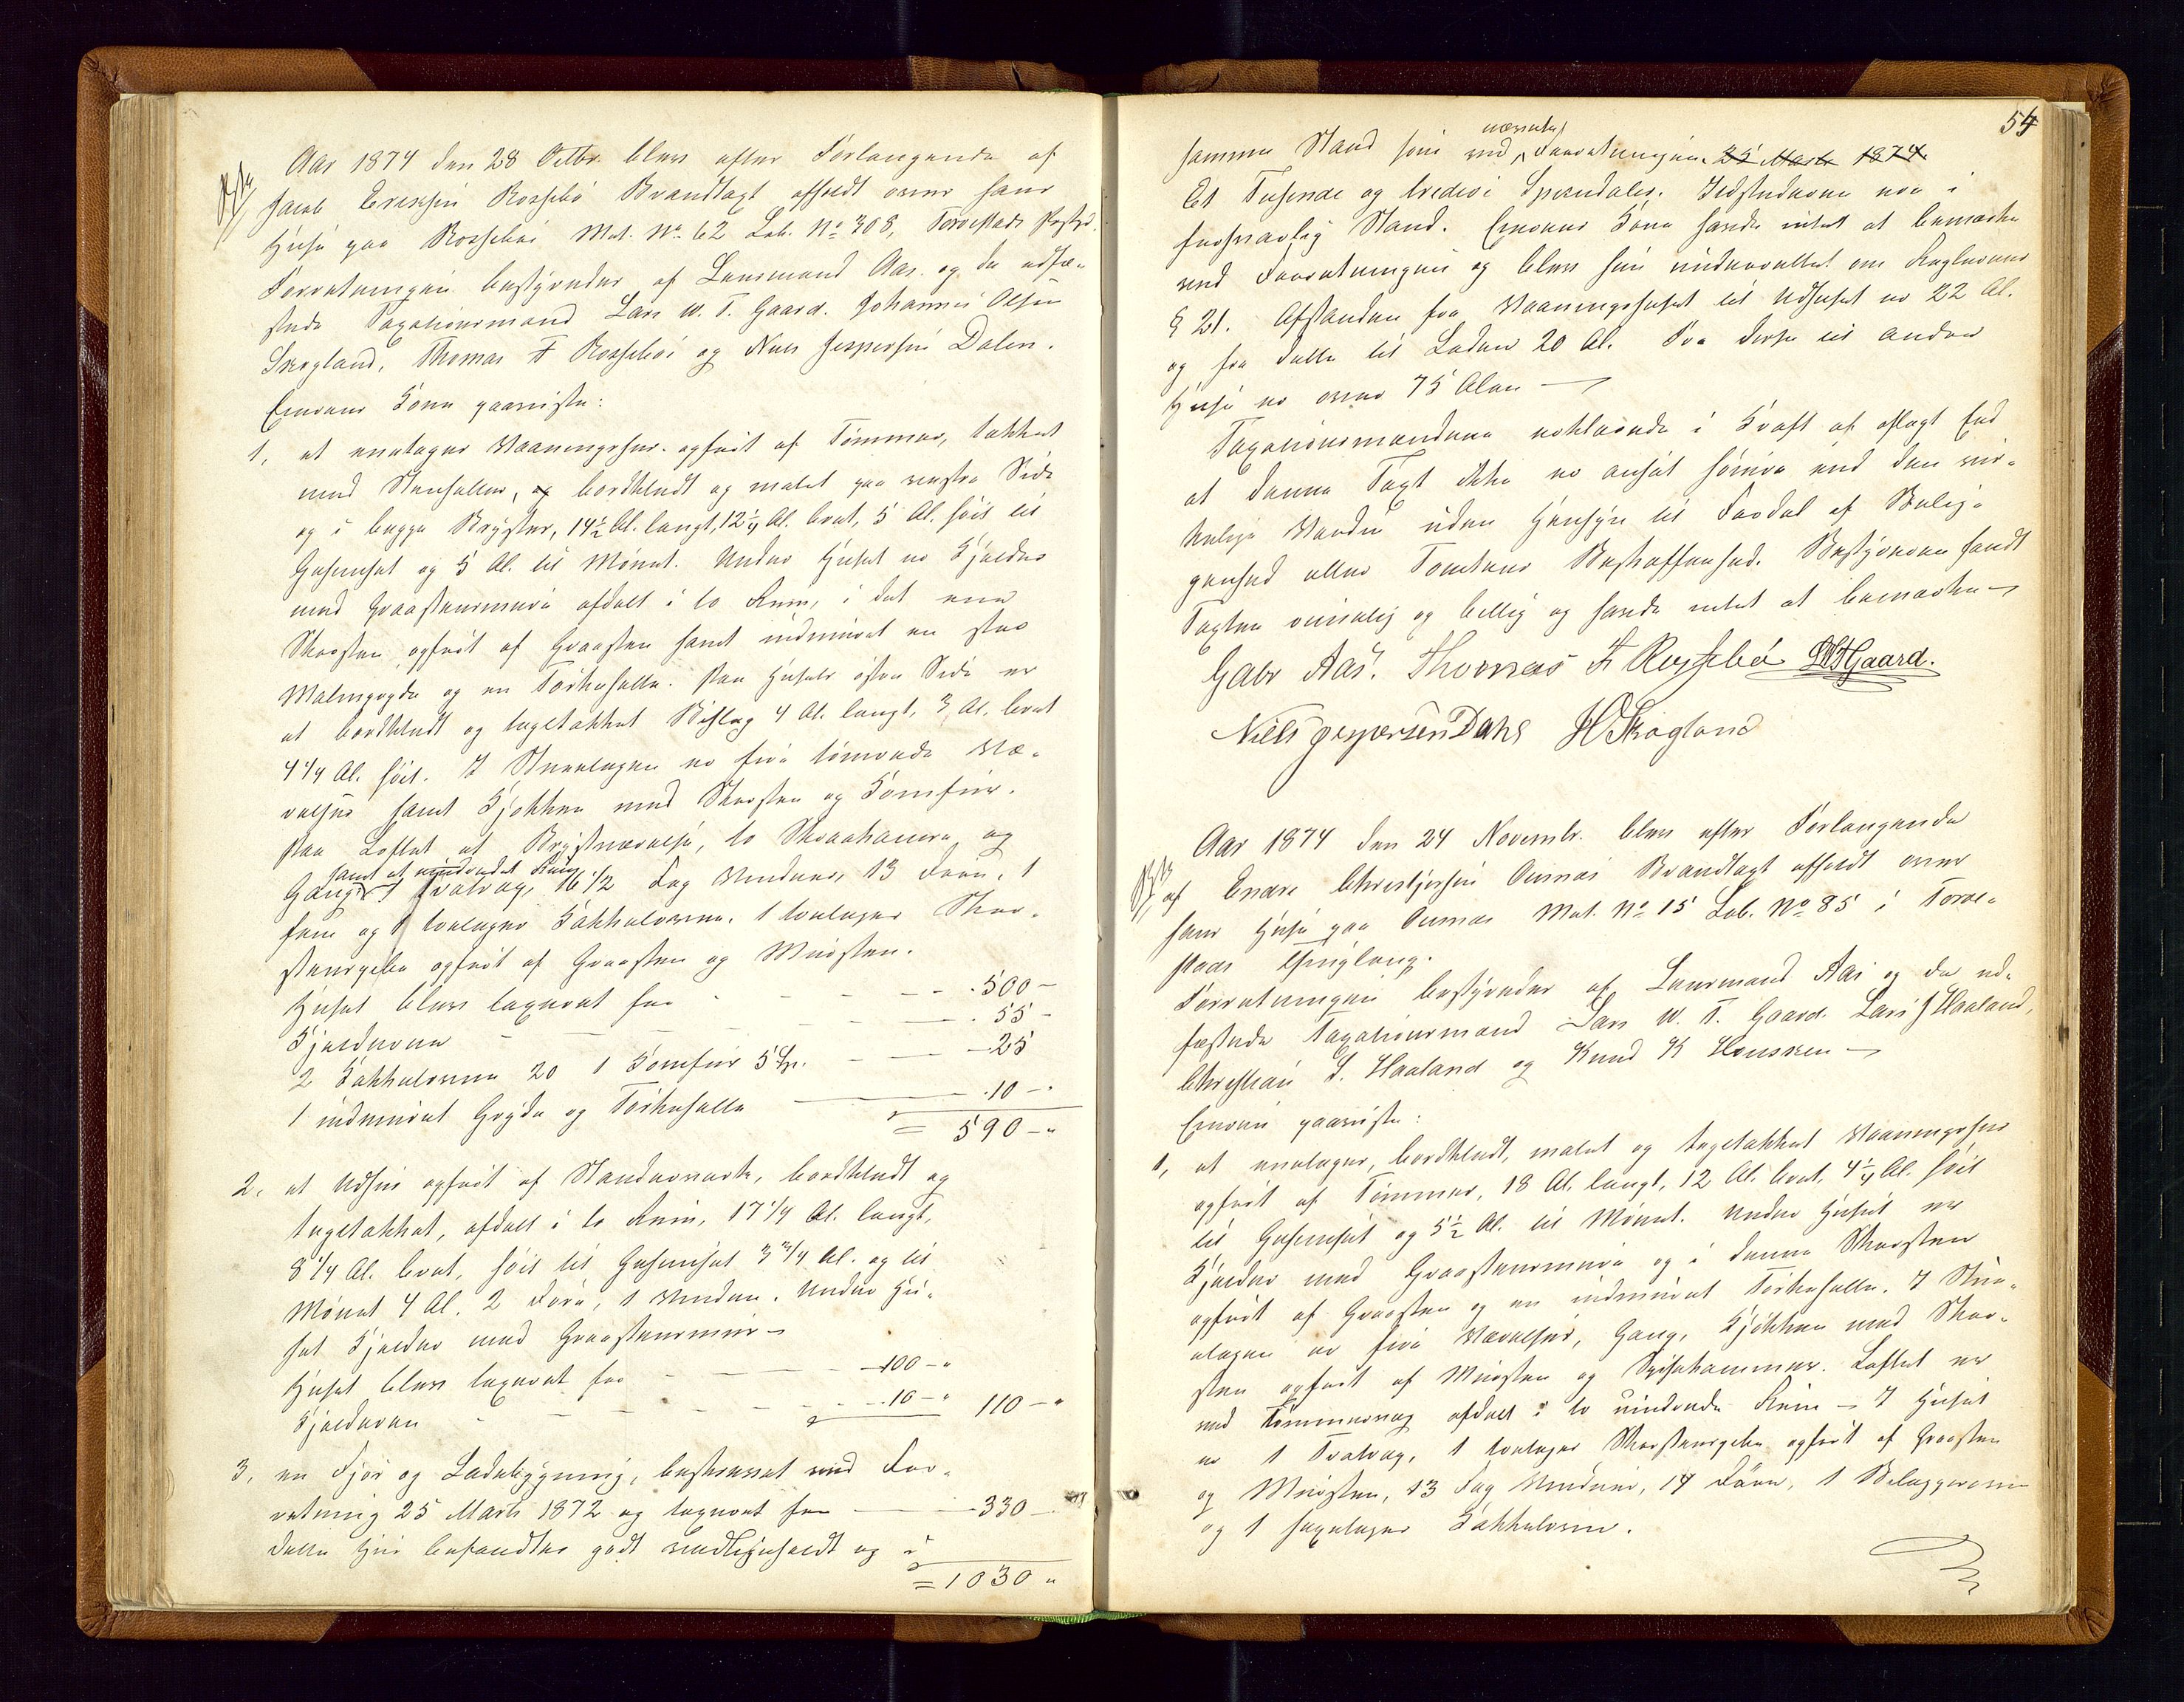 Aar 1874 den 28 Octbr. blev efter Forlangende af
Jacob Eriksen Rossebö Brandtaxt afholdt over hans
Huse paa Rossebö Mat. No. 62 Løb. No 308, Torvestads Præstgd.
Forretningen bestyredes af Lensmand Aas. og de udsæ-
stede Taxationsmænd Lars W. T. Gaard. Johannes Olsen
Skogland, Thomas F Rossebö og Niels Jespersen Dalen.
Eierens Kone paaviste:
1, et enetages Vaaningshus. opført af Tömmer, takket
med Stenheller, bordklædt og malet paa vestre Side
og i begge Bryster, 14½ Al. langt, 12¼ Al. bred, 5 Al. höit til
Gesimset og 5 Al. til Mönet. Under Huset er Kjelder
med Graastensmure afdelt i to Rum, i det ene
Skorsten opført af Graasten samt indmuret en stor
Maltgryde og en Törkehelle. Paa Husets östre Side er
et bordklædt og tagtækket Bislag 4 Al. langt, 3 Al. bred
4¼ Al. höit. I Stueetagen er fire tömrede Væ-
relser samt Kjökken med Skorsten og Komfur.
Paa Loftet et Brystværelse, to Skraakamre og
samt et uindredet Rum
Gang. 1 Svalvæg, 16 1/2 Fag Vinduer, 13 Döre, 1
fem og 1 toetages Kakkelovne. 1 toetages Skor-
stenspibe opført af Graasten og Mursten.
Huset blev taxeret for - - - 500 -
Kjelderen - - - 55 -
2 Kakkelovne 20 1 Komfur 5 Sp. - - 25
1 indmuret Gryde og Törkehelle 10 -
= 590 - "
2, et Udhus opført af Standerværk, bordklædt og
tagtækket, afdelt i to Rum, 17 1/4 Al. langt,
8 1/4 Al. bred, höit til Gesimset 3 3/4 Al. og til
Mönet 4 Al. 2 Döre, 1 Vindue. Under Hu-
set Kjelder med Graastensmur -
Huset blev taxeret for - - 100 - "
Kjelderen - - - 10 - " 110 - "
3, en Fjös og Ladebygning, beskrevet ved For-
retning 25 Marts 1872 og taxeret for 330 -
dette Hus befandtes godt vedligeholdt og i
= 1030 "
54
samme Stand som ved nævnte Forretningen. 25 Marts 1874
Et Tusende og tredive Speciedaler. Ildstederne var i
forsvarlig Stand. Eierens Kone havde intet at bemærke
ved Forretningen og blev hun underrettet om Reglernes
§ 21. Afstanden fra Vaaningshuset til Udhuset er 22 Al.
og fra dette til Laden 20 Al. Fra disse til andre
Huse er over 75 Alen -
Taxationsmændene erklærede i Kraft af aflagt Eed
at denne Taxt ikke er ansat höiere end den vir-
kelige Værdi uden Hensyn til Fordel af Belig-
genhed eller Tomtens Beskaffenhed. Bestyreren fandt
Taxten rimelig og billig og havde intet at bemærke -
Gabr Aas. Thomas F Rossebö LWTGaard.
Niels Jespersen Dahle JOSkogland
Aar 1874 den 24 Novembr. blev efter Forlangende
af Enare Christjersen Aunas Brandtaxt afholdt over
hans Huse paa Aunas Mat. No 15 Løb. No 85 i Torve-
stads Thinglaug.
Forretningen bestyredes af Lensmand Aas og de ud-
sæstede Taxationsmænd Lars W. T. Gaard. Lars J Haaland,
Christian L. Haaland og Knud K Housken -
Eieren paaviste:
1, et enetages, bordklædt, malet og tagtækket Vaaningshus
opført af Tömmer, 18 Al. langt, 12 Al. bred, 4¼ Al. höit
til Gesimset og 5½ Al. til Mönet. Under Huset er
Kjelder med Graastensmure og i denne Skorsten
opført af Graasten og en indmuret Törkehelle. I Stue-
etagen er fire Værelser, Gang, Kjökken med Skor-
sten opført af Mursten og Spisekammer. Loftet er
med Tömmervæg afdelt i to uindredede Rum - I Huset
er 1 Svalvæg, 1 toetages Skorstenspibe opført af Graasten
og Mursten, 13 Fag Vinduer, 14 Döre, 1 Bilæggerovn
og 1 sexetages Kakkelovn.